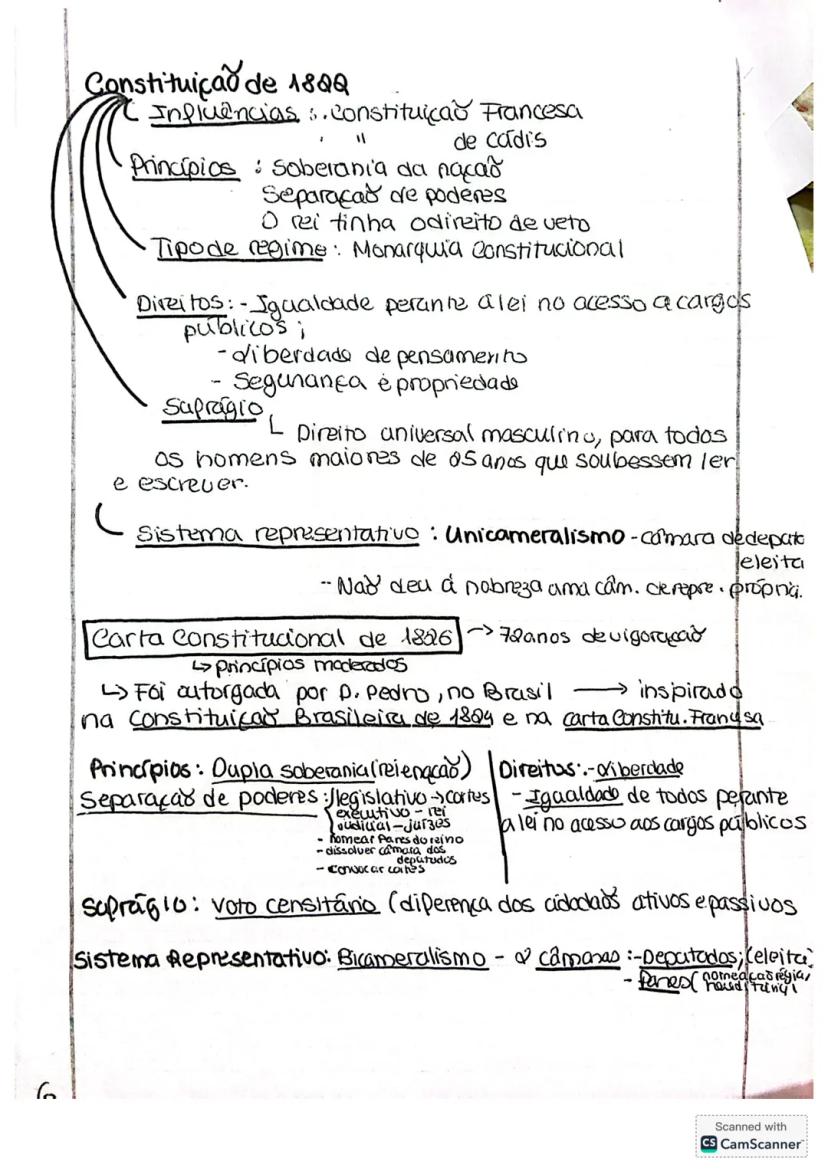 Constituição de 1822
Influências : . Constituição Francesa
" de cádis
Princípios : Soberania da nação
Separação de poderes
O rei tinha o direito de veto
Tipo de regime : Monarquia Constitucional
Direitos : - Igualdade perante a lei no acesso a cargos
públicos ;
- Liberdade de pensamento
- Segurança e propriedade
Sufrágio
Direito universal masculino, para todos
os homens maiores de 25 anos que soubessem ler
e escrever.
Sistema representativo : Unicameralismo - câmara de deputo
eleita
- Não deu á nobreza uma câm. de repre. própria.
Carta Constitucional de 1826 → 72 anos de vigoração
↳ princípios moderados
↳ Foi outorgada por D. Pedro, no Brasil → inspirada
na Constituição Brasileira de 1824 e na carta Constitu. Francesa
Princípios : Dupla soberania (rei e nação)
Separação de poderes : legislativo → cortes
executivo - rei
judicial - juízes
- nomear Pares do reino
- dissolver câmara dos
deputados
- convocar cortes
Direitos : - Liberdade
- Igualdade de todos perante
a lei no acesso aos cargos públicos
Sufrágio : voto censitário (diferença dos cidadãos ativos e passivos
Sistema Representativo : Bicameralismo - 2 câmaras : - Deputados; (eleita)
- Pares ( nomeação régia,
Scanned with
CS CamScanner